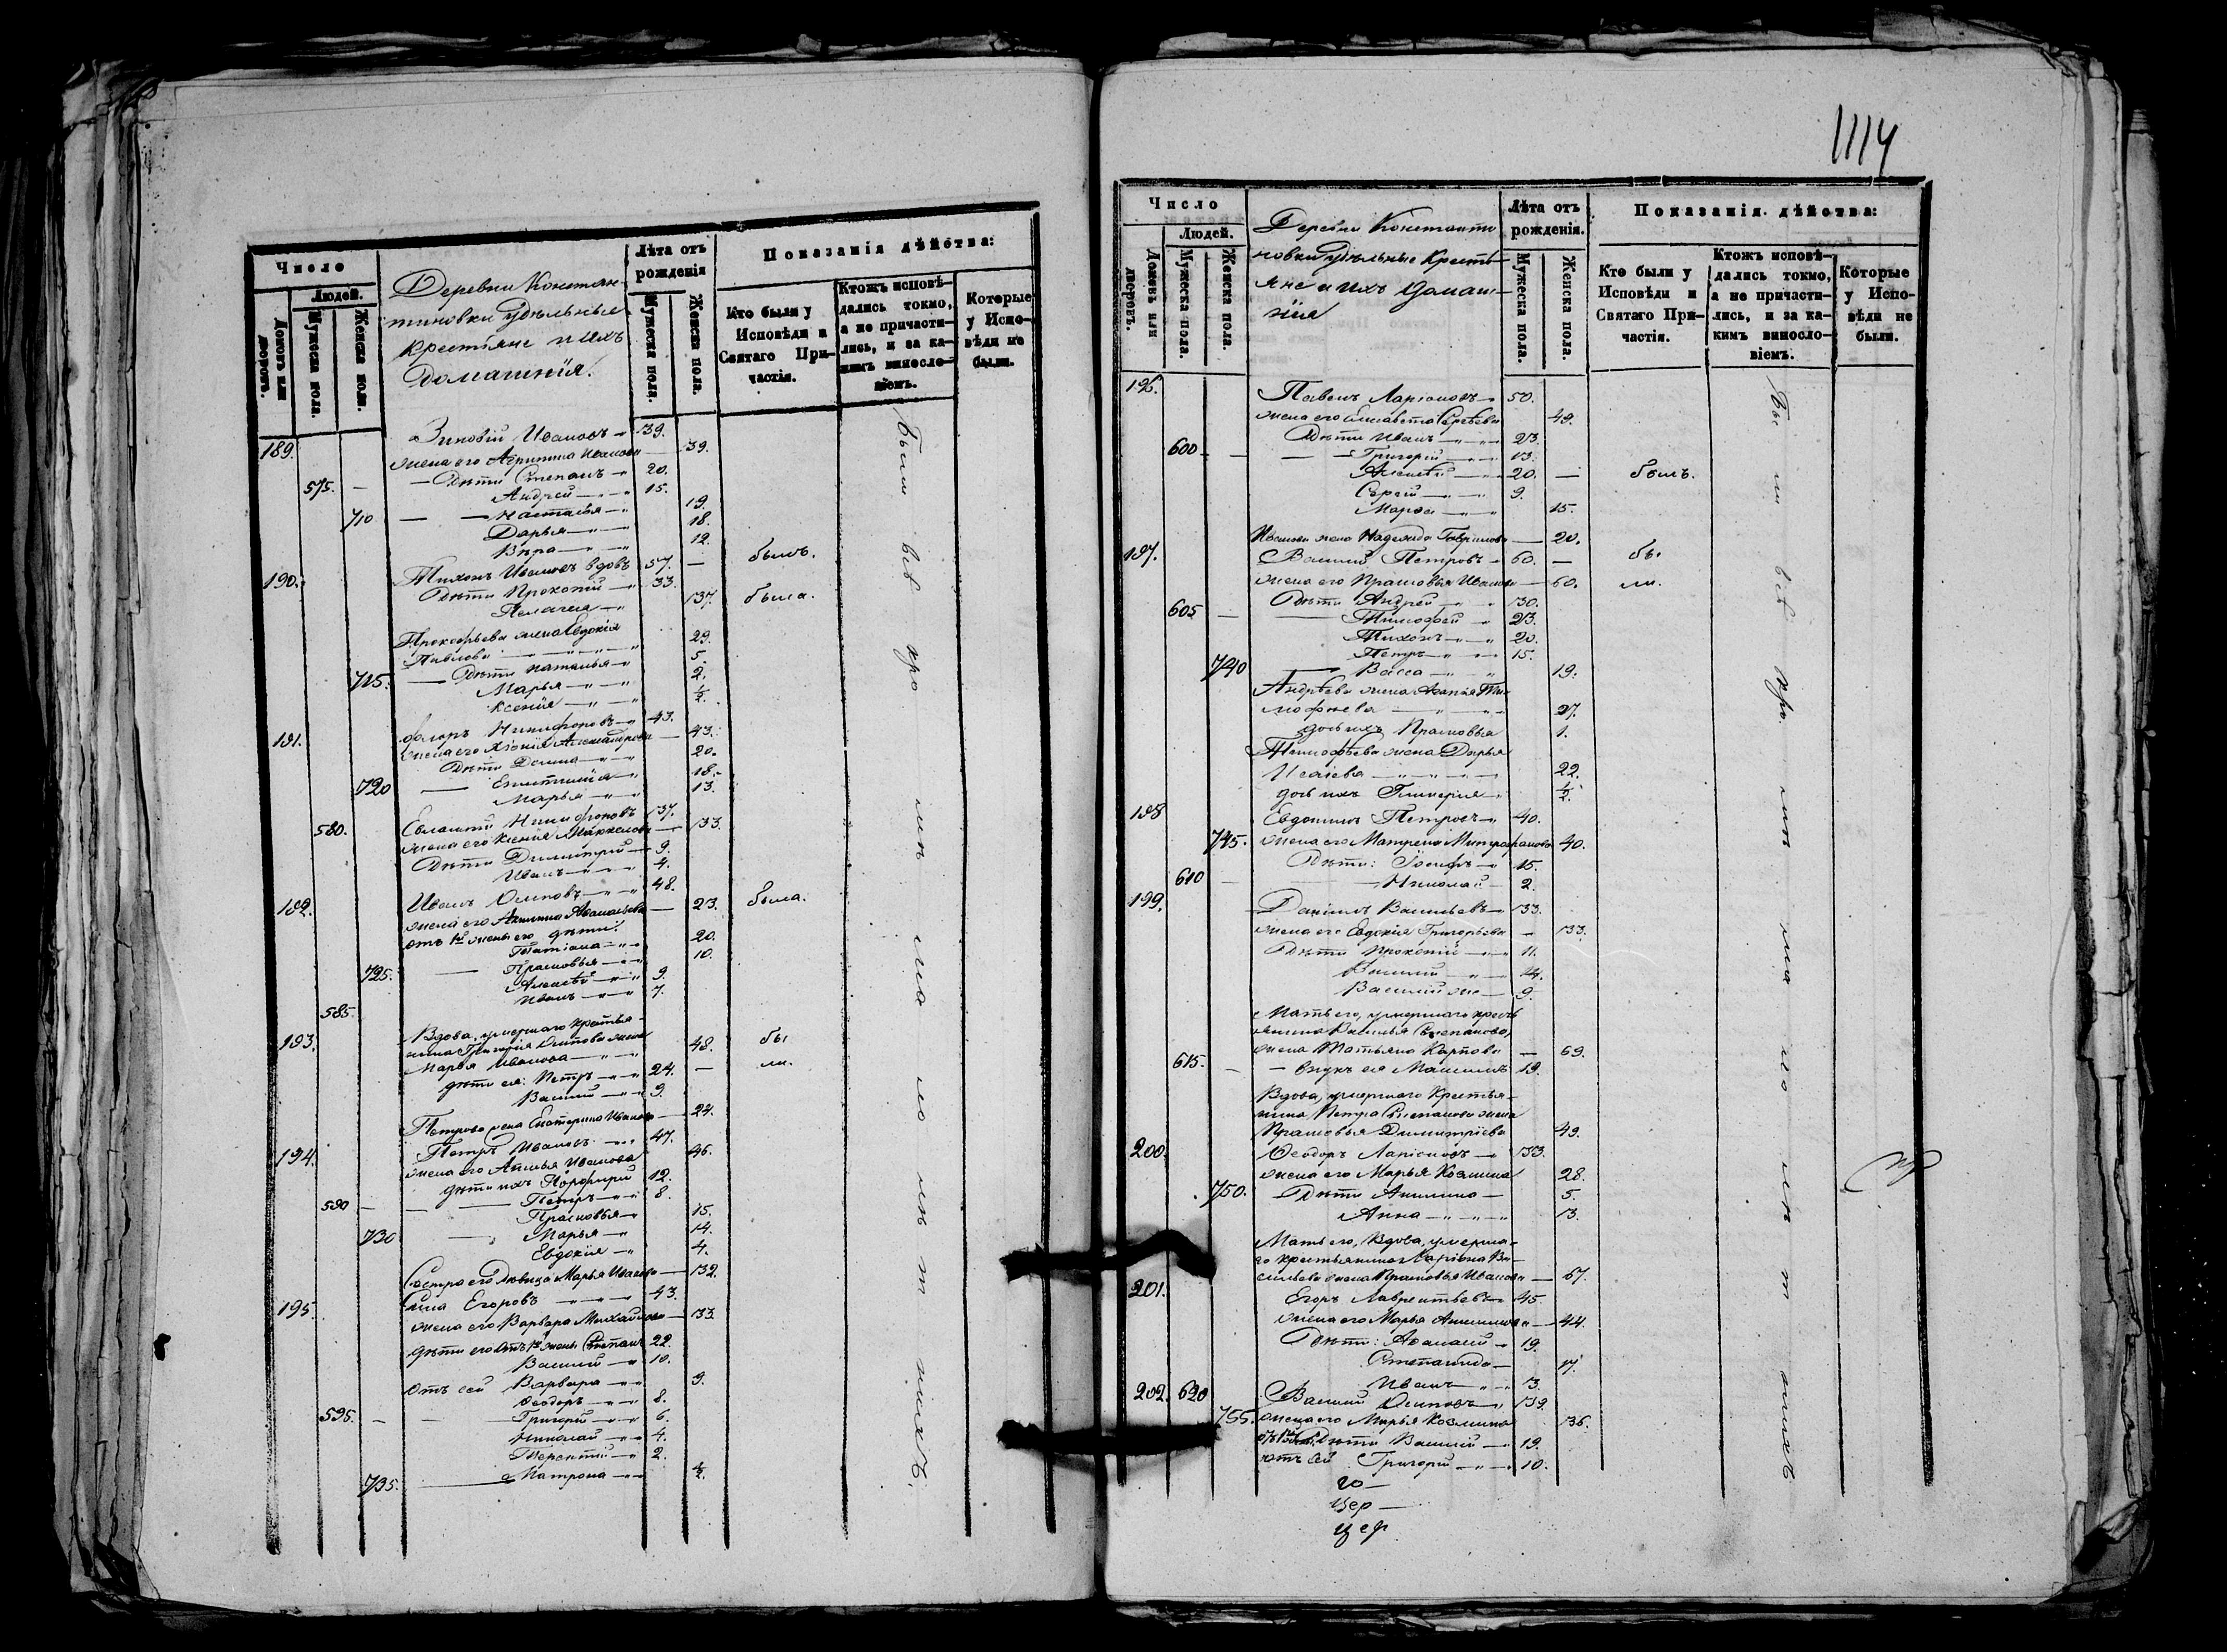 Число
Людей.
Домовъ или дворовъ.
Мужеска пола.
Женска пола.
Деревни Констан-
тиновки Удѣльные
крестьяне и ихъ
домашнія.
Лѣта отъ рожденія
Мужеска пола.
Женска пола.
Показанія дѣйства:
Кто были у Исповѣди и Святаго При-частія.
Ктожъ исповѣ-дались токмо, а не причасти-лись, и за ка-кимъ винсло-віемъ.
Которые у Испо-вѣди не были.
189. Зиновій Ивановъ 39.
жена его Агрипина Иванова 39.
575. Дѣти Степанъ 20.
Андрей 15.
710 Настасья 19.
Дарья 18.
Вѣра 12.
190. Тихонъ Ивановъ вдовъ 57. былъ.
Дѣти Прокопій 33.
Пелагея 37. была.
Прокофьева жена Евдокія
Павлова 29.
715. Дѣти Наталья 5.
Марья 2.
Ксенія ½.
191. Флоръ Никифоровъ 43.
жена его Ксенія Александрова 43.
Дѣти Домна 20.
720 Епистимія 18.
Марья 13.
580. Евлампій Никифоровъ 37.
жена его Ксенія Маркелова 33.
Дѣти Димитрій 9.
Иванъ 4.
192. Иванъ Осиповъ 48.
жена его Акилина Аѳанасьева 23. была.
отъ 1й жены его дѣти:
Татіана 20.
725. Прасковья 10.
Алексѣй 9.
585. Иванъ 7.
193. Вдова, умершаго крестья-
нина Григорія Осипова жена
Марѳа Иванова 48. бы
дѣти ея: Петръ 24. ли.
Василій 9.
Петрова жена Екатерина Иванова 24.
194. Петръ Ивановъ 47.
жена его Анисья Иванова 46.
дѣти ихъ Порфирій 12.
590 Петръ 8.
Прасковья 15.
730 Марья 14.
Евдокія 4.
Сестра его дѣвица Марья Иванова 32.
195. Сила Егоровъ 43.
жена его Варвара Михайлова 33.
дѣти его отъ 1й жены Степанъ 22.
Василій 10.
отъ сей Варвара 9.
Ѳеодоръ 8.
595. Григорій 6.
Николай 4.
Терентій 2.
735. Матрона ½.
Были всѣ кро
1114
Число
Людей.
Домовъ или дворовъ.
Мужеска пола.
Женска пола.
Деревни Константи
новки Удѣльные Кресть-
яне и ихъ домаш-
нія
Лѣта отъ рожденія.
Мужеска пола.
Женска пола.
Показанія дѣйства:
Кто были у Исповѣди и Святаго При-частія.
Ктожъ исповѣ-дались токмо, а не причасти-лись, и за ка-кимъ винсло-віемъ.
Которые у Испо-вѣди не были.
196. Павелъ Ларіоновъ 50.
жена его Елисавета Сергѣева 49.
Дѣти Иванъ 23.
600 Григорій 13.
Алексѣй 20. былъ.
Сергій 9.
Марѳа 15.
Иванова жена Надежда Гаврилова 20.
197. Василій Петровъ 60. бы
жена его Прасковья Иванова 60. ли.
Дѣти Андрей 30.
605 Тимофей 23.
Тихонъ 20.
Петръ 15.
740 Васса 19.
Андрѣева жена Агапія Ти-
мофеева 27.
дочь ихъ Прасковья 1.
Тимофѣева жена Дарья
Исаіева 22.
дочь ихъ Гликерія ½.
198 Евдокимъ Петровъ 40.
745. жена его Матрена Митрофанова 40.
Дѣти: Іосифъ 15.
610 Николай 2.
199. Даніилъ Васильевъ 33.
жена его Евдокія Григорьева 33.
Дѣти Прокопій 11.
Василій 14.
Василій же 9.
Мать его, умершаго кресть
янина Василья Степанова,
жена Татьяна Карпова 69.
615. внукъ ея Максимъ 19.
Вдова, умершаго Крестья-
нина Петра Степанова жена
Прасковья Димитріева 49.
200. Ѳеодоръ Ларіоновъ 33.
жена его Марья Козмина 28.
750. Дѣти Акилина 5.
Анна 3.
Мать его, Вдова, умерша-
го крестьянина Ларіона Ва-
сильева жена Прасковья Иванова 67.
201. Егоръ Лаврентьевъ 45.
жена его Марья Анисимова 44.
Дѣти: Аѳанасій 19.
Степанида 17.
620 Иванъ 3.
202. Василій Осиповъ 39.
755. жена его Марья Козмина 36.
Дѣти Василій 19.
отъ сей Григорій 10.
го
цер
цер